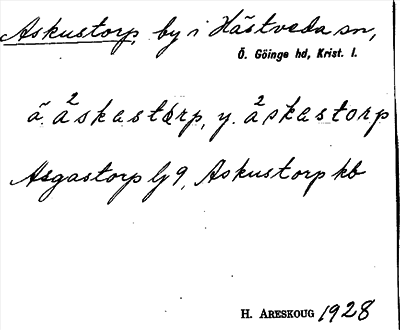 Askustorp, by i Hästveda sn,
Ö. Göinge hd, Krist. l.
ä. ²åskastårp, y. ²åskastorp
Asgastorp lj 9, Askustorp kb
H. ARESKOUG 1928